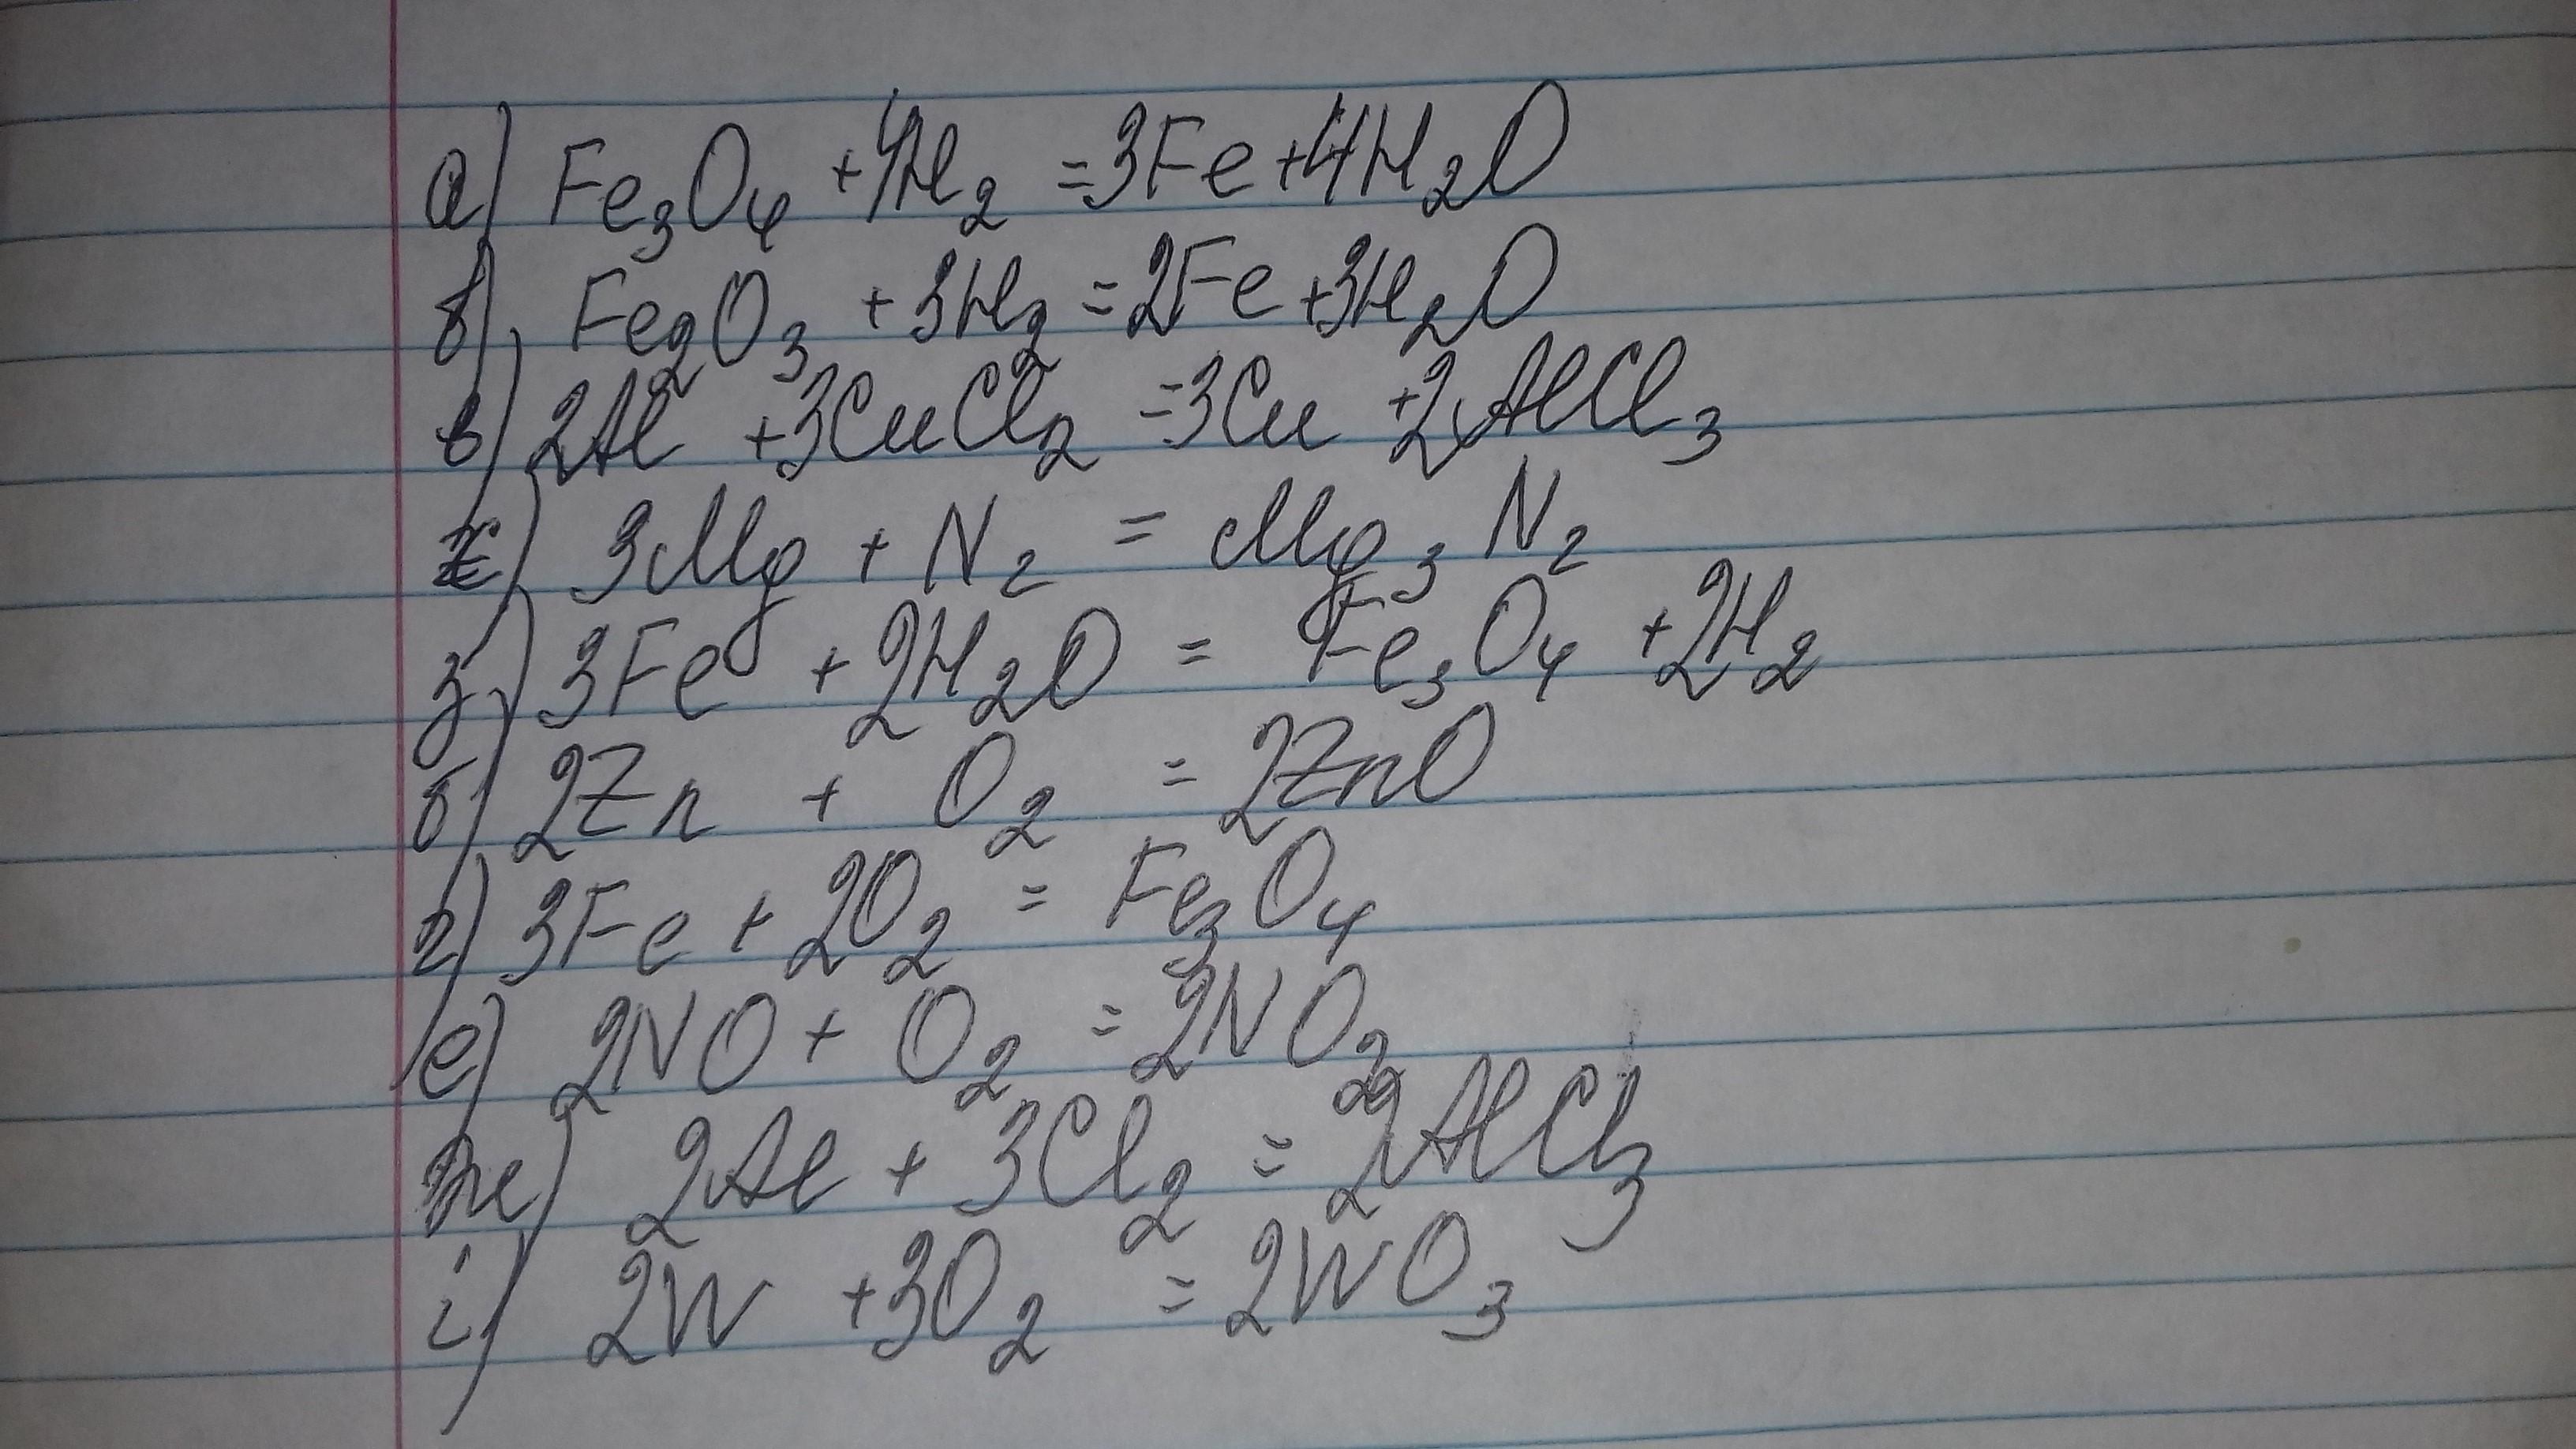 а) Fe₃O₄ + 4H₂ = 3Fe + 4H₂O
б) Fe₂O₃ + 3H₂ = 2Fe + 3H₂O
в) 2Al + 3CuCl₂ = 3Cu + 2AlCl₃
є) 3Mg + N₂ = Mg₃N₂
з) 3Fe + 2H₂O = Fe₃O₄ + 2H₂
б) 2Zn + O₂ = 2ZnO
г) 3Fe + 2O₂ = Fe₃O₄
е) 2NO + O₂ = 2NO₂
ж) 2Al + 3Cl₂ = 2AlCl₃
і) 2W + 3O₂ = 2WO₃